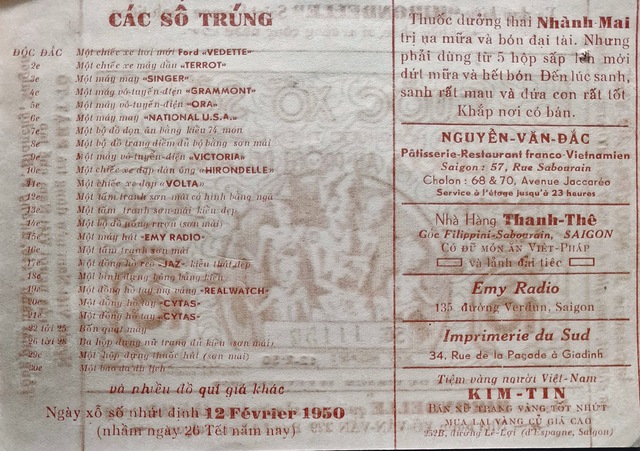 CÁC SỐ TRÚNG
ĐỘC ĐẮC Một chiếc xe hơi mới Ford «VEDETTE»
2e Một chiếc xe máy dầu «TERROT»
3e Một máy may «SINGER»
4e Một máy vô-tuyến-điện «GRAMMONT»
5e Một máy vô-tuyến-điện «ORA»
6e Một máy may «NATIONAL U.S.A.»
7e Một bộ đồ dọn ăn bằng kiểu 74 món
8e Một bộ đồ trang điểm đủ bộ bằng sơn mài
9e Một máy vô-tuyến-điện «VICTORIA»
10e Một chiếc xe đạp đàn ông «HIRONDELLE»
11e Một chiếc xe đạp «VOLTA»
12e Một tấm tranh sơn mài có hình bằng ngà
13e Một tấm tranh sơn mài kiểu đẹp
14e Một bộ đồ uống rượu (sơn mài)
15e Một máy hát «EMY RADIO»
16e Một tấm tranh sơn mài
17e Một đồng hồ reo «JAZ» kiểu thật đẹp
18e Một bình đựng bông bằng kiểu
19e Một đồng hồ tay mạ vàng «REALWATCH»
20e Một đồng hồ tay «CYTAS»
21e Một đồng hồ tay «CYTAS»
22 tới 25 Bốn quạt máy
26 tới 28 Ba hộp đựng nữ trang đủ kiểu (sơn mài)
29e Một hộp đựng thuốc hút (sơn mài)
30e Một bao da du lịch
và nhiều đồ quí giá khác
Ngày xổ số nhứt định 12 Février 1950
(nhằm ngày 26 Tết năm nay)
Thuốc dưỡng thai Nhành-Mai
trị ụa mữa và bón đại tài. Nhưng
phải dùng từ 5 hộp sấp lên mới
dứt mữa và hết bón Đến lúc sanh,
sanh rất mau và đứa con rất tốt
Khắp nơi có bán.
NGUYỄN-VĂN-ĐẮC
Pâtisserie-Restaurant franco-Vietnamien
Saigon : 57, Rue Sabourain
Cholon : 68 & 70, Avenue Jaccaréo
Service à l'étage jusqu'à 23 heures
Nhà Hàng Thanh-Thế
Góc Filippini-Sabourain, SAIGON
CÓ ĐỦ MÓN ĂN VIỆT-PHÁP
và lãnh đãi tiệc
Emy Radio
135 đường Verdun, Saigon
Imprimerie du Sud
34, Rue de la Paçade à Giadinh
Tiệm vàng người Việt-Nam
KIM-TÍN
BÁN NỮ TRANG VÀNG TỐT NHỨT
MUA LẠI VÀNG CŨ GIÁ CAO
252B, đường Lê-Lợi (d'Espagne, Saigon)